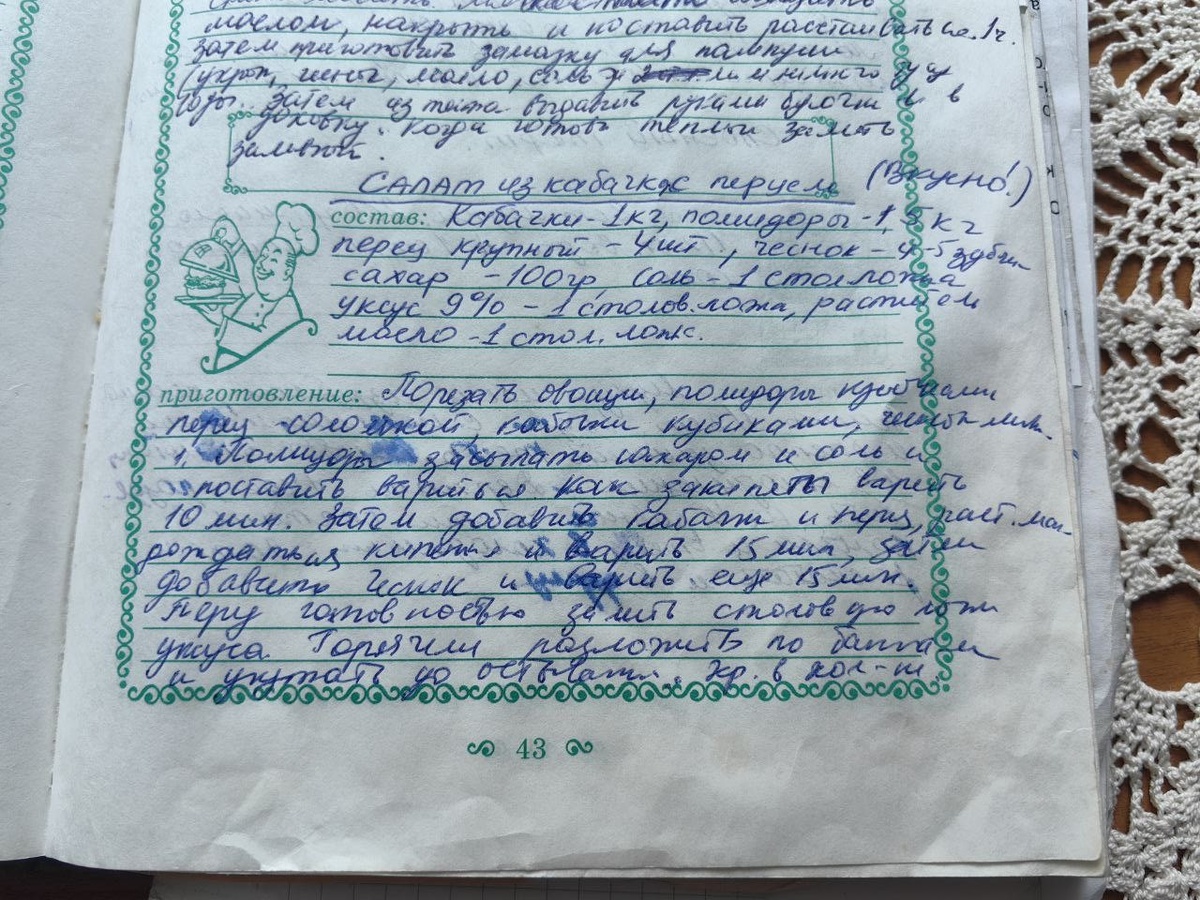 маслом, накрыть и поставить расстаиваться 1 ч.
затем приготовить замазку для пампушк
(укроп, чеснок, масло, соль и немного
воды. Затем из теста выдавить руками булочки и в
духовку. Когда готовы теплыи залить
заливкой.
Салат из кабачка с перцем (Вкусно!)
состав: Кабачки - 1 кг, помидоры - 1,5 кг
перец крупный - 4 шт, чеснок - 4-5 зубчи
сахар - 100 гр, соль - 1 стол ложка
уксус 9% - 1 столов. ложа, растител
масло - 1 стол. ложк.
приготовление: Порезать овощи, помидоры кубиками
перец соломкой, кабачки кубиками, чеснок мелк.
1. Помидоры засыпать сахаром и соль и
поставить вариться. Как закипеты варить
10 мин. Затем добавить кабачки и перец, раст. мас-
дождаться кипения и варить 15 мин, затем
добавить чеснок и варить еще 15 мин.
Перед готовностью залить столовую ложк
уксуса. Горячим разложить по банкам
и укутать до остывания. Хр. в хол-ни
43